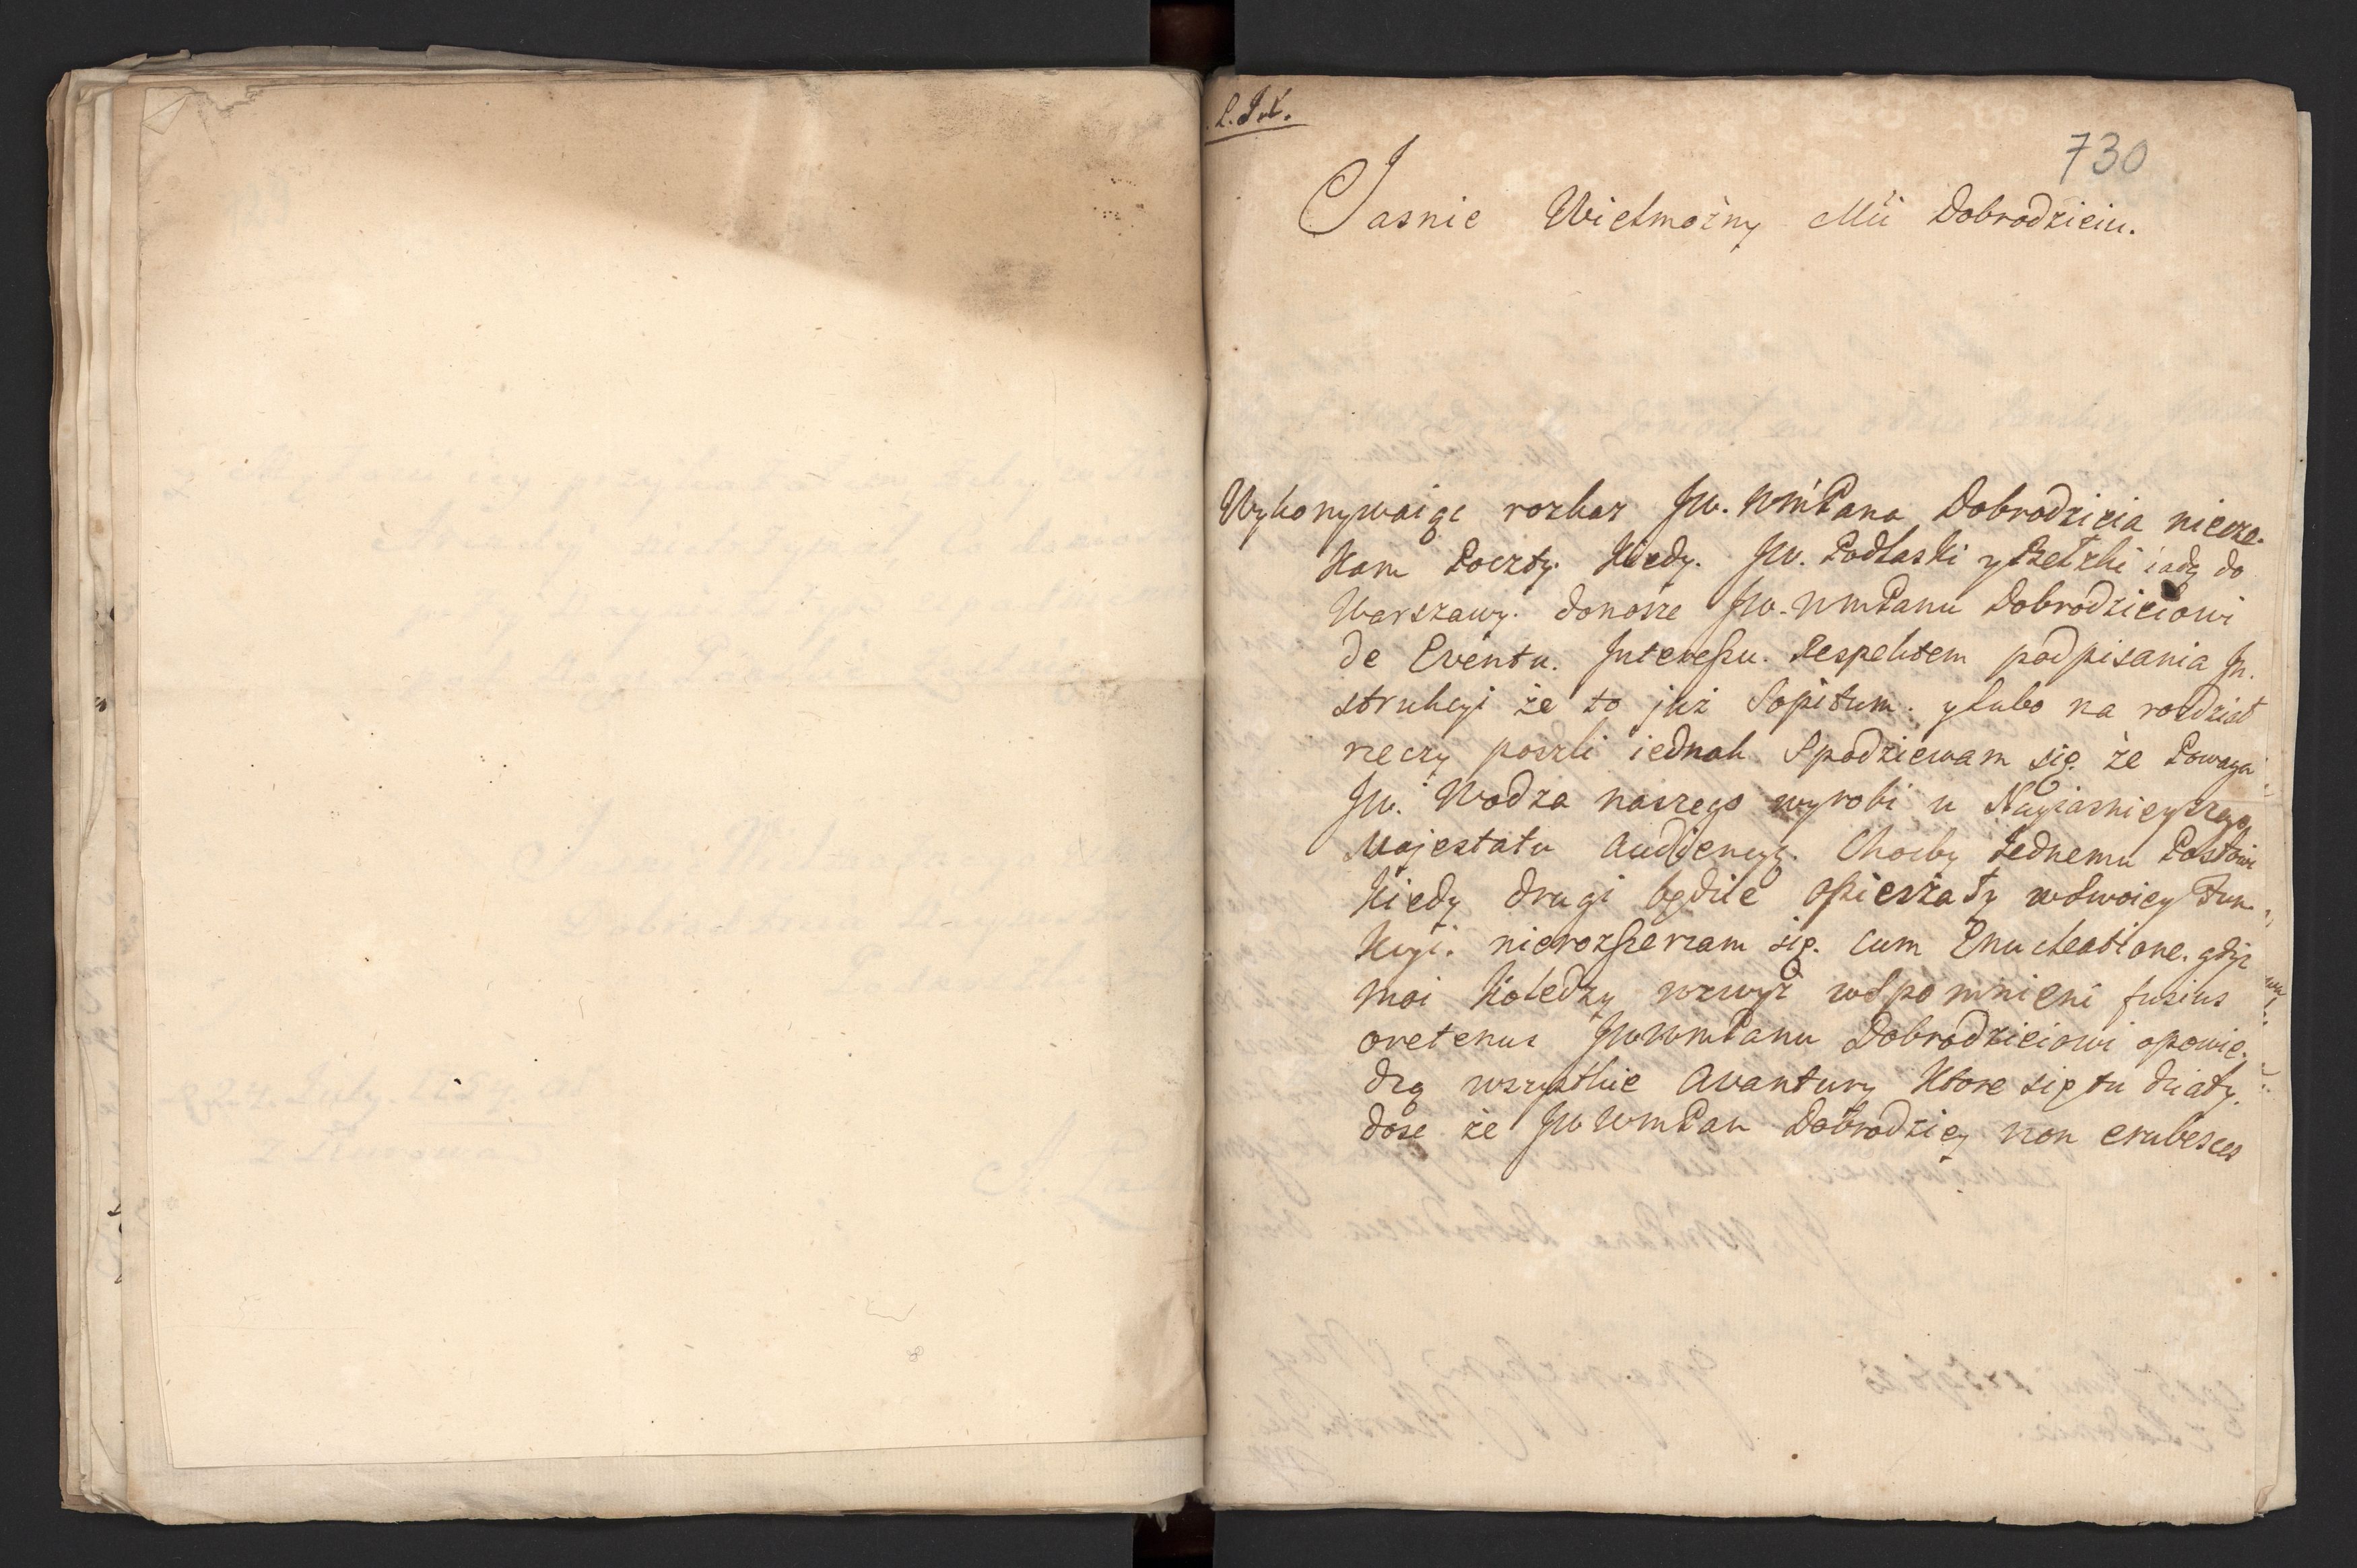 730
Jasnie Wielmożny Mći Dobrodzieiu.
Wykonywaiąc rozkaz Jw. WmPana Dobrodzieia niecze-
kam Poczty. Kiedy. Jw. Podlaski y Bełzki iadą do
Warszawy. donosze Jw. WmPanu Dobrodzieiowi
de Eventu. Interessu. Respektem podpisania In-
strukcyi że to już Sopitum. y lubo na rozdział
rzeczy poszli iednak Spodziewam się że Powaga
Jw. Wodza naszego wyrobi u Nayiasnieyszego
Majestatu Audyencyą. Choćby Jednemu Posłowi
Kiedy drugi będzie opieszały w Swoiey Fun-
kcyi. nierozszerzam się. cum Enucleatione. gdyż
moi Koledzy wzwyż wspomnieni fusius
oretenus JwWmPanu Dobrodzieiowi opowie-
dzą wszystkie Avantury Ktore się tu działy.
dose że JwWmPan Dobrodziey non erubesces